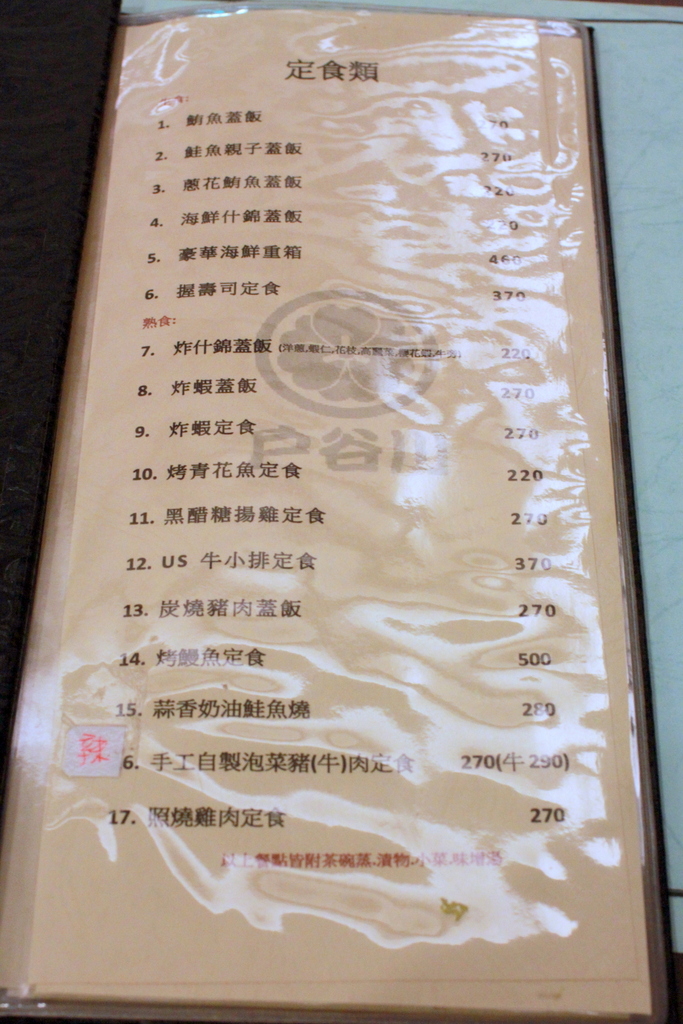 定食類
1. 鮪魚蓋飯 70
2. 鮭魚親子蓋飯 270
3. 蔥花鮪魚蓋飯 220
4. 海鮮什錦蓋飯 20
5. 豪華海鮮重箱 460
6. 握壽司定食 370
熟食:
7. 炸什錦蓋飯 (洋蔥.蝦仁.花枝.高麗菜.櫻花蝦.牛蒡) 220
8. 炸蝦蓋飯 270
9. 炸蝦定食 270
10. 烤青花魚定食 220
11. 黑醋糖揚雞定食 270
12. US 牛小排定食 370
13. 炭燒豬肉蓋飯 270
14. 烤鰻魚定食 500
15. 蒜香奶油鮭魚燒 280
辣 6. 手工自製泡菜豬(牛)肉定食 270(牛 290)
17. 照燒雞肉定食 270
以上餐點皆附茶碗蒸.漬物.小菜.味增湯
戶谷川